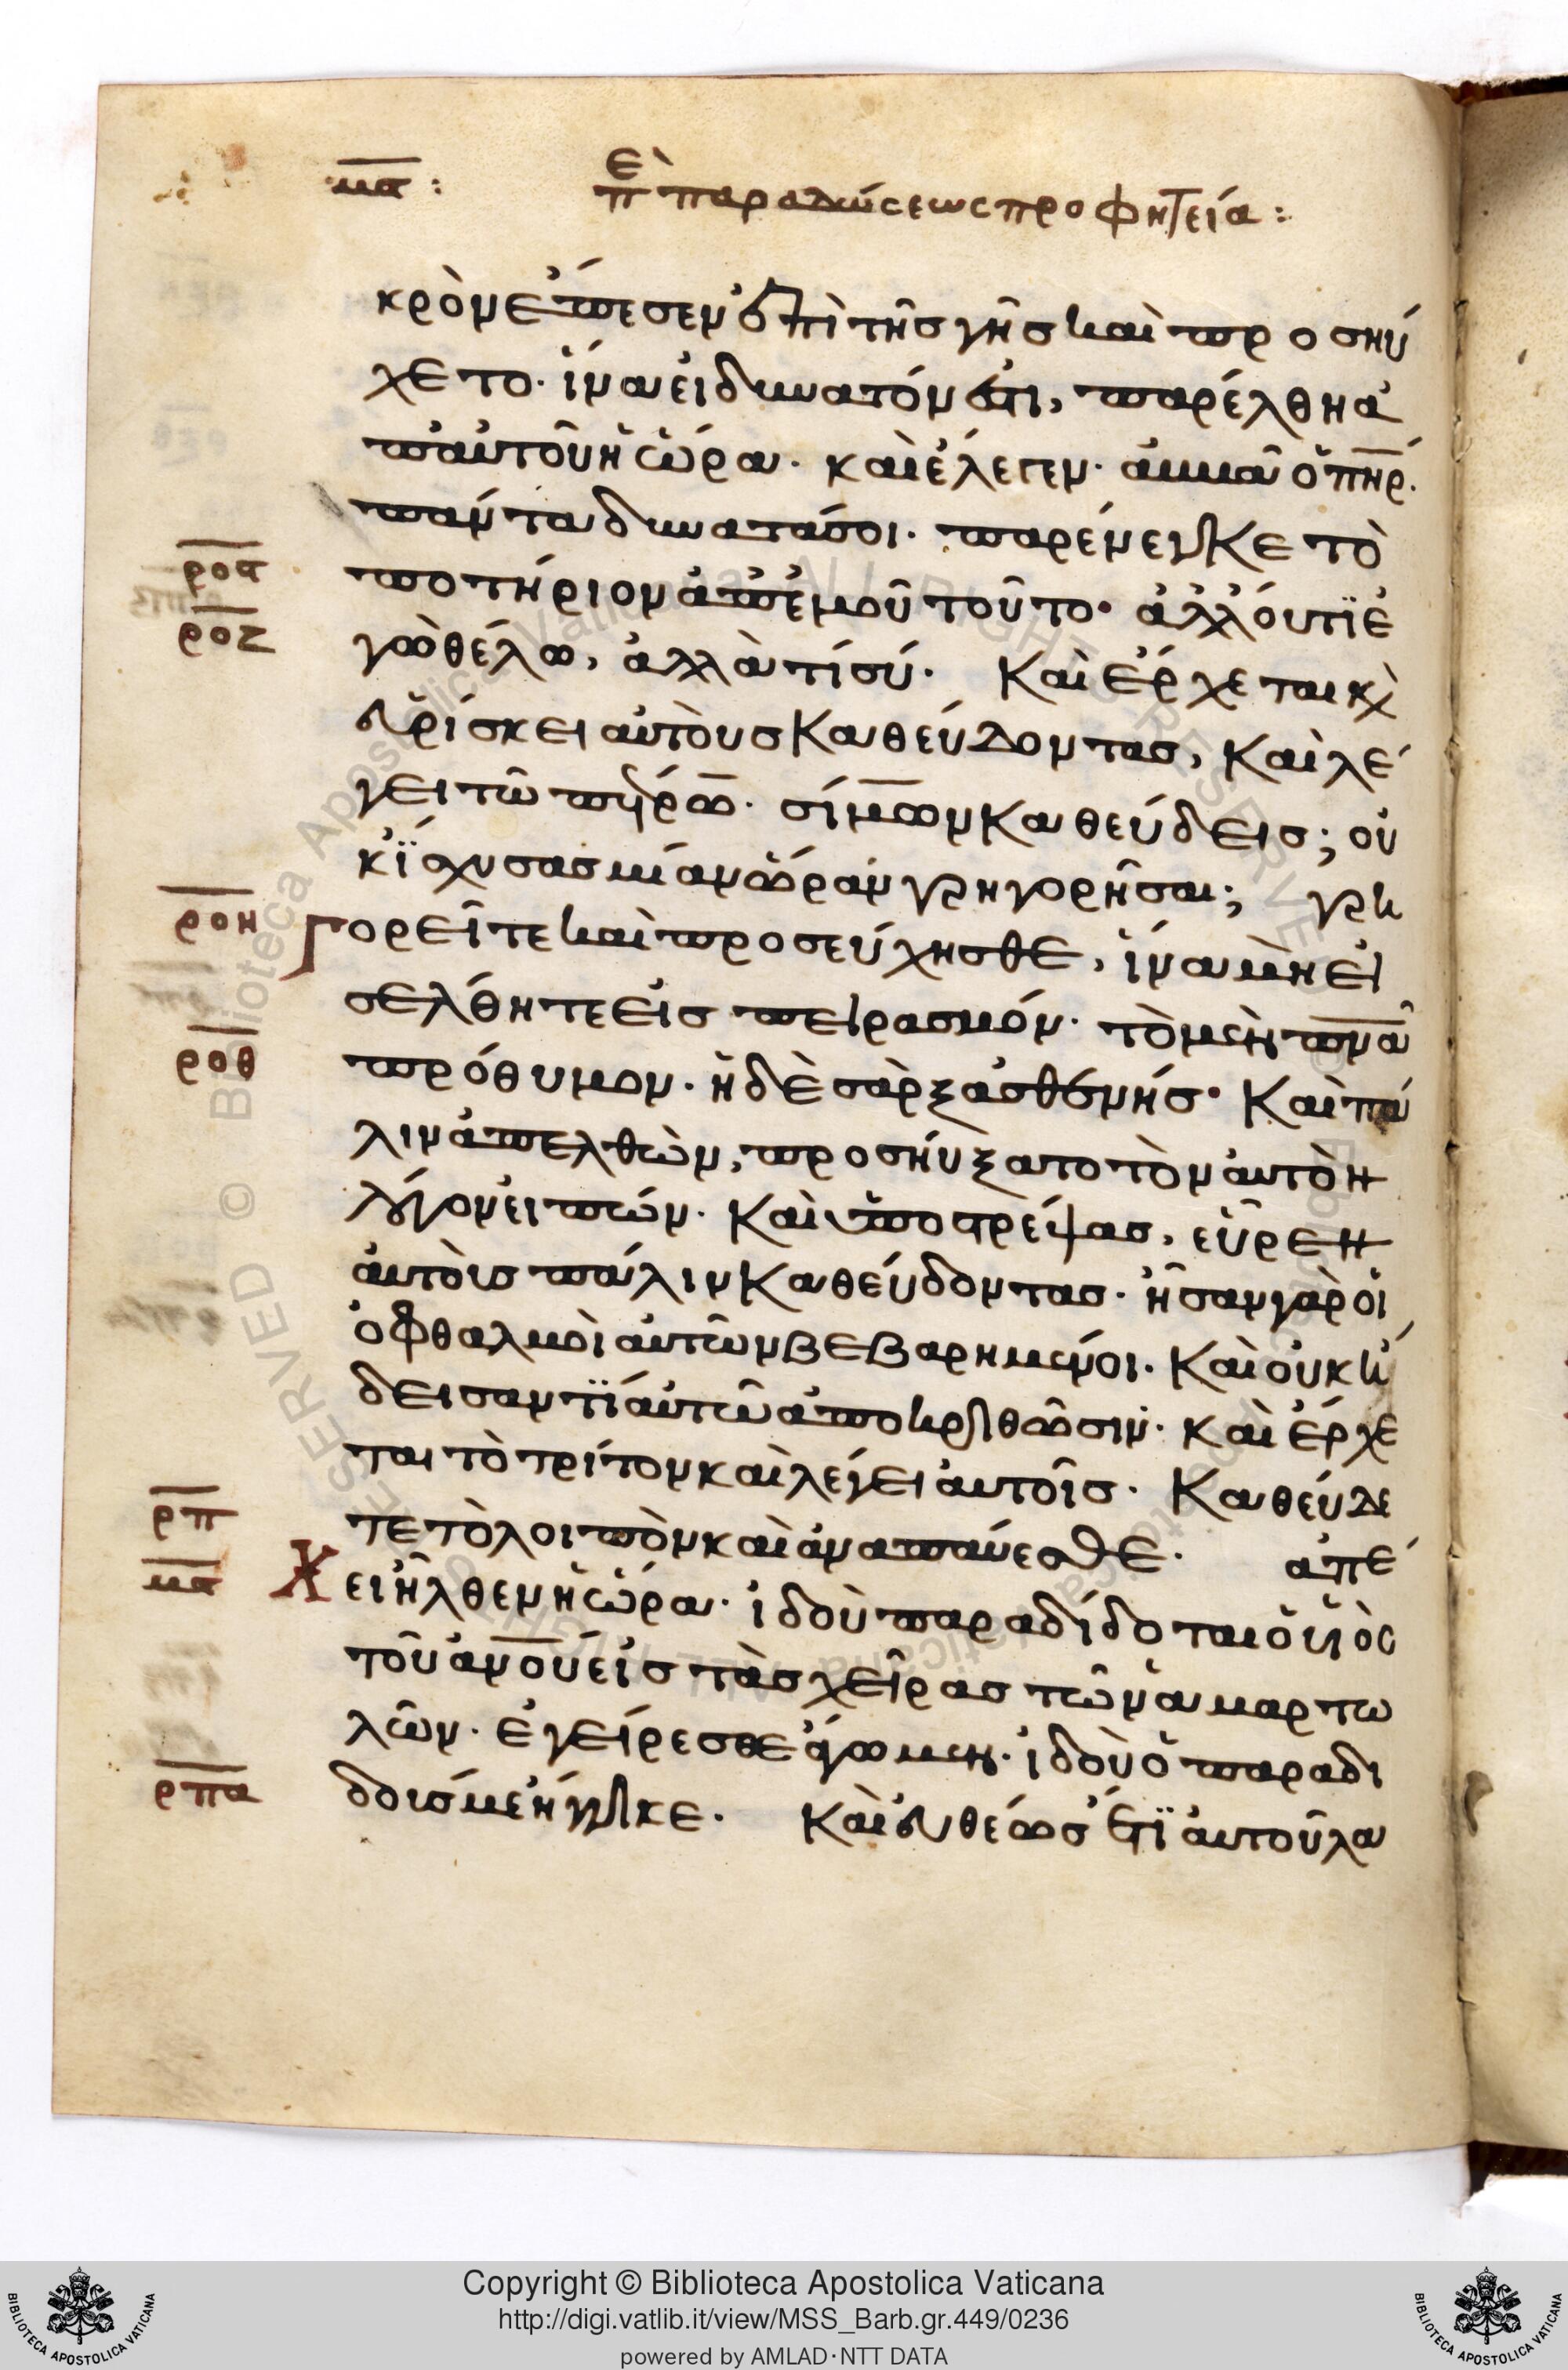 μα: ἐπ παραδώσεως προφητεία:
κρὸν ἔπεσεν ἐπὶ τῆς γῆς καὶ προσηύ
χετο· ἵνα εἰ δυνατόν ἐστι, παρέλθη ἀ
π' αὐτοῦ ἡ ὥρα· καὶ ἔλεγεν· ἀββᾶ ὁ πηρ·
πάντα δυνατά σοι· παρένεγκε τὸ
ροϛ ποτήριον ἀπ' ἐμοῦ τοῦτο· ἀλλ' οὐ τί ἐ
ροζ γὼ θέλω, ἀλλὰ τί σύ· Καὶ ἔρχεται κὶ
εὑρίσκει αὐτοὺς καθεύδοντας, καὶ λέ
γει τῶ πέτρω· σίμων καθεύδεις; οὐ
κ ἴσχυσας μίαν ὥραν γρηγορῆσαι; γρη
ροη γορεῖτε καὶ προσεύχησθε, ἵνα μὴ εἰ
σέλθητε εἰς πειρασμόν· τὸ μὲν πνα
ροθ πρόθυμον· ἡ δὲ σὰρξ ἀσθενής· Καὶ πά
λιν ἀπελθὼν, προσηύξατο τὸν αὐτὸν
λόγον εἰπών· Καὶ ὑποστρέψας, εὗρεν
αὐτοὺς πάλιν καθεύδοντας· ἦσαν γὰρ οἱ
ὀφθαλμοὶ αὐτῶν βεβαρημένοι· Καὶ οὐκ ἤ
δεισαν τί αὐτῶ ἀποκριθῶσιν· καὶ ἔρχε
ται τὸ τρίτον καὶ λέγει αὐτοῖς· Καθεύδε
ρπ τε τὸ λοιπὸν καὶ ἀναπαύεσθε· ἀπέ
μα Χει ἦλθεν ἡ ὥρα· ἰδοὺ παραδίδοται ὁ υἱὸς
τοῦ ανου εἰς τὰς χεῖρας τῶν ἁμαρτω
λῶν· ἐγείρεσθε ἄγωμεν· ἰδοὺ ὁ παραδι
ρπα δούς με ἤγγικε· Καὶ εὐθέως ἔτι αὐτοῦ λα
Copyright © Biblioteca Apostolica Vaticana
http://digi.vatlib.it/view/MSS_Barb.gr.449/0236
powered by AMLAD·NTT DATA